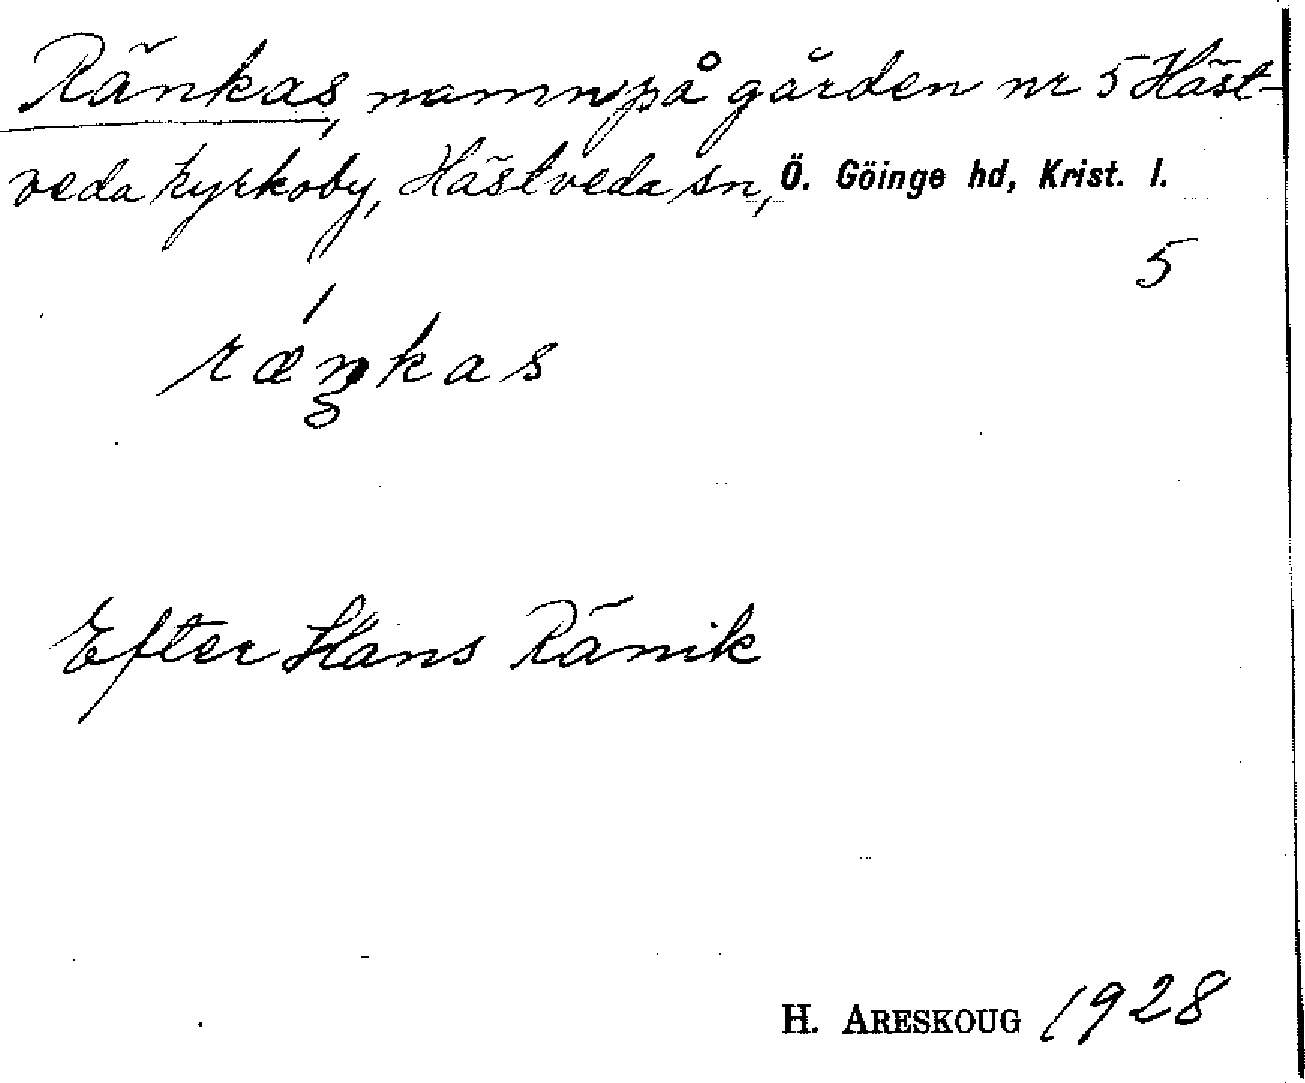 Ränkas, namn på gården nr 5 Häst-
veda kyrkoby, Hästveda sn, Ö. Göinge hd, Krist. l.
5
ræ´nkas
Efter Hans Ränik
H. ARESKOUG 1928